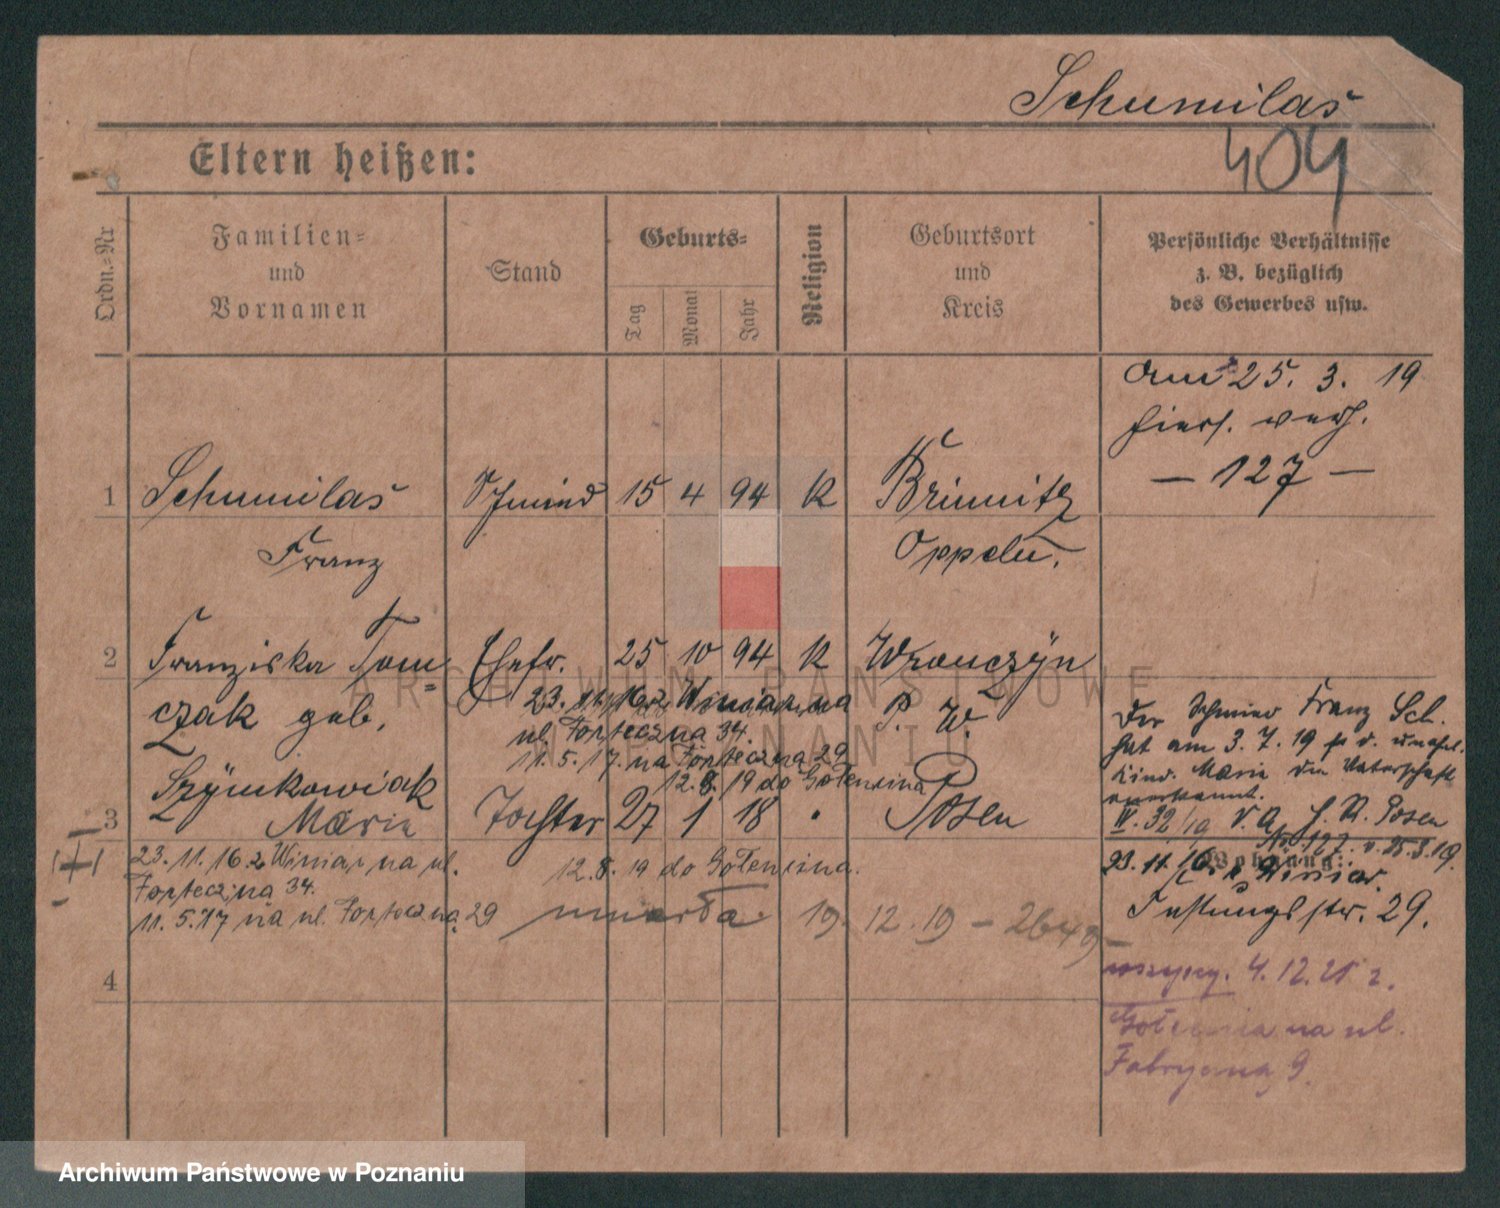 Schumilas
404
Eltern heißen:
Ordn.=Nr
Familien=
und
Vornamen
Stand
Geburts=
Tag
Monat
Jahr
Religion
Geburtsort
und
Kreis
Persönliche Verhältnisse
z. B. bezüglich
des Gewerbes usw.
am 25. 3. 19
hiers. verh.
— 127 —
1 Schumilas Schmied 15 4 94 K Brinnitz
Franz Oppeln.
2 Franziska Tom= Ehefr. 25 10 94 K Wronczyn
czak geb. P. W.
Szymkowiak
23. 11. 16 z Winiar na
ul. Forteczna 34.
11. 5. 17. na Forteczna 29
12. 8. 19 do Golencina
3 Maria Tochter 27 1 18 " Posen
Der Schmied Franz Sch.
hat am 3. 7. 19 d. unehel.
Kind. Maria die Vaterschaft
anerkannt.
IV. 32/19 V. A. St. A. Posen
No 127. v. 25.3.19.
23. 11. 16 z Winiar na ul.
Forteczna 34.
11. 5. 17 na ul. Forteczna 29
12. 8. 19 do Golencina.
umarła 19. 12. 19 — 2649
Wohnung:
23. 11. 16 Winiar.
Festungsstr. 29.
4
4. 12. 21 r.
Golencin na ul.
Fabryczna 9.
ARCHIWUM PAŃSTWOWE
W POZNANIU
Archiwum Państwowe w Poznaniu